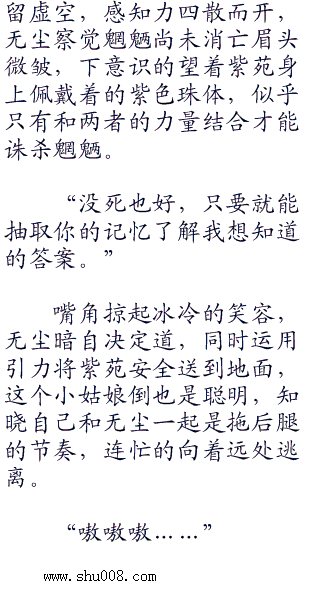 留虚空，感知力四散而开，
无尘察觉魍魉尚未消亡眉头
微皱，下意识的望着紫苑身
上佩戴着的紫色珠体，似乎
只有和两者的力量结合才能
诛杀魍魉。
“没死也好，只要就能
抽取你的记忆了解我想知道
的答案。”
嘴角掠起冰冷的笑容，
无尘暗自决定道，同时运用
引力将紫苑安全送到地面，
这个小姑娘倒也是聪明，知
晓自己和无尘一起是拖后腿
的节奏，连忙的向着远处逃
离。
“嗷嗷嗷……”
www.shu008.com